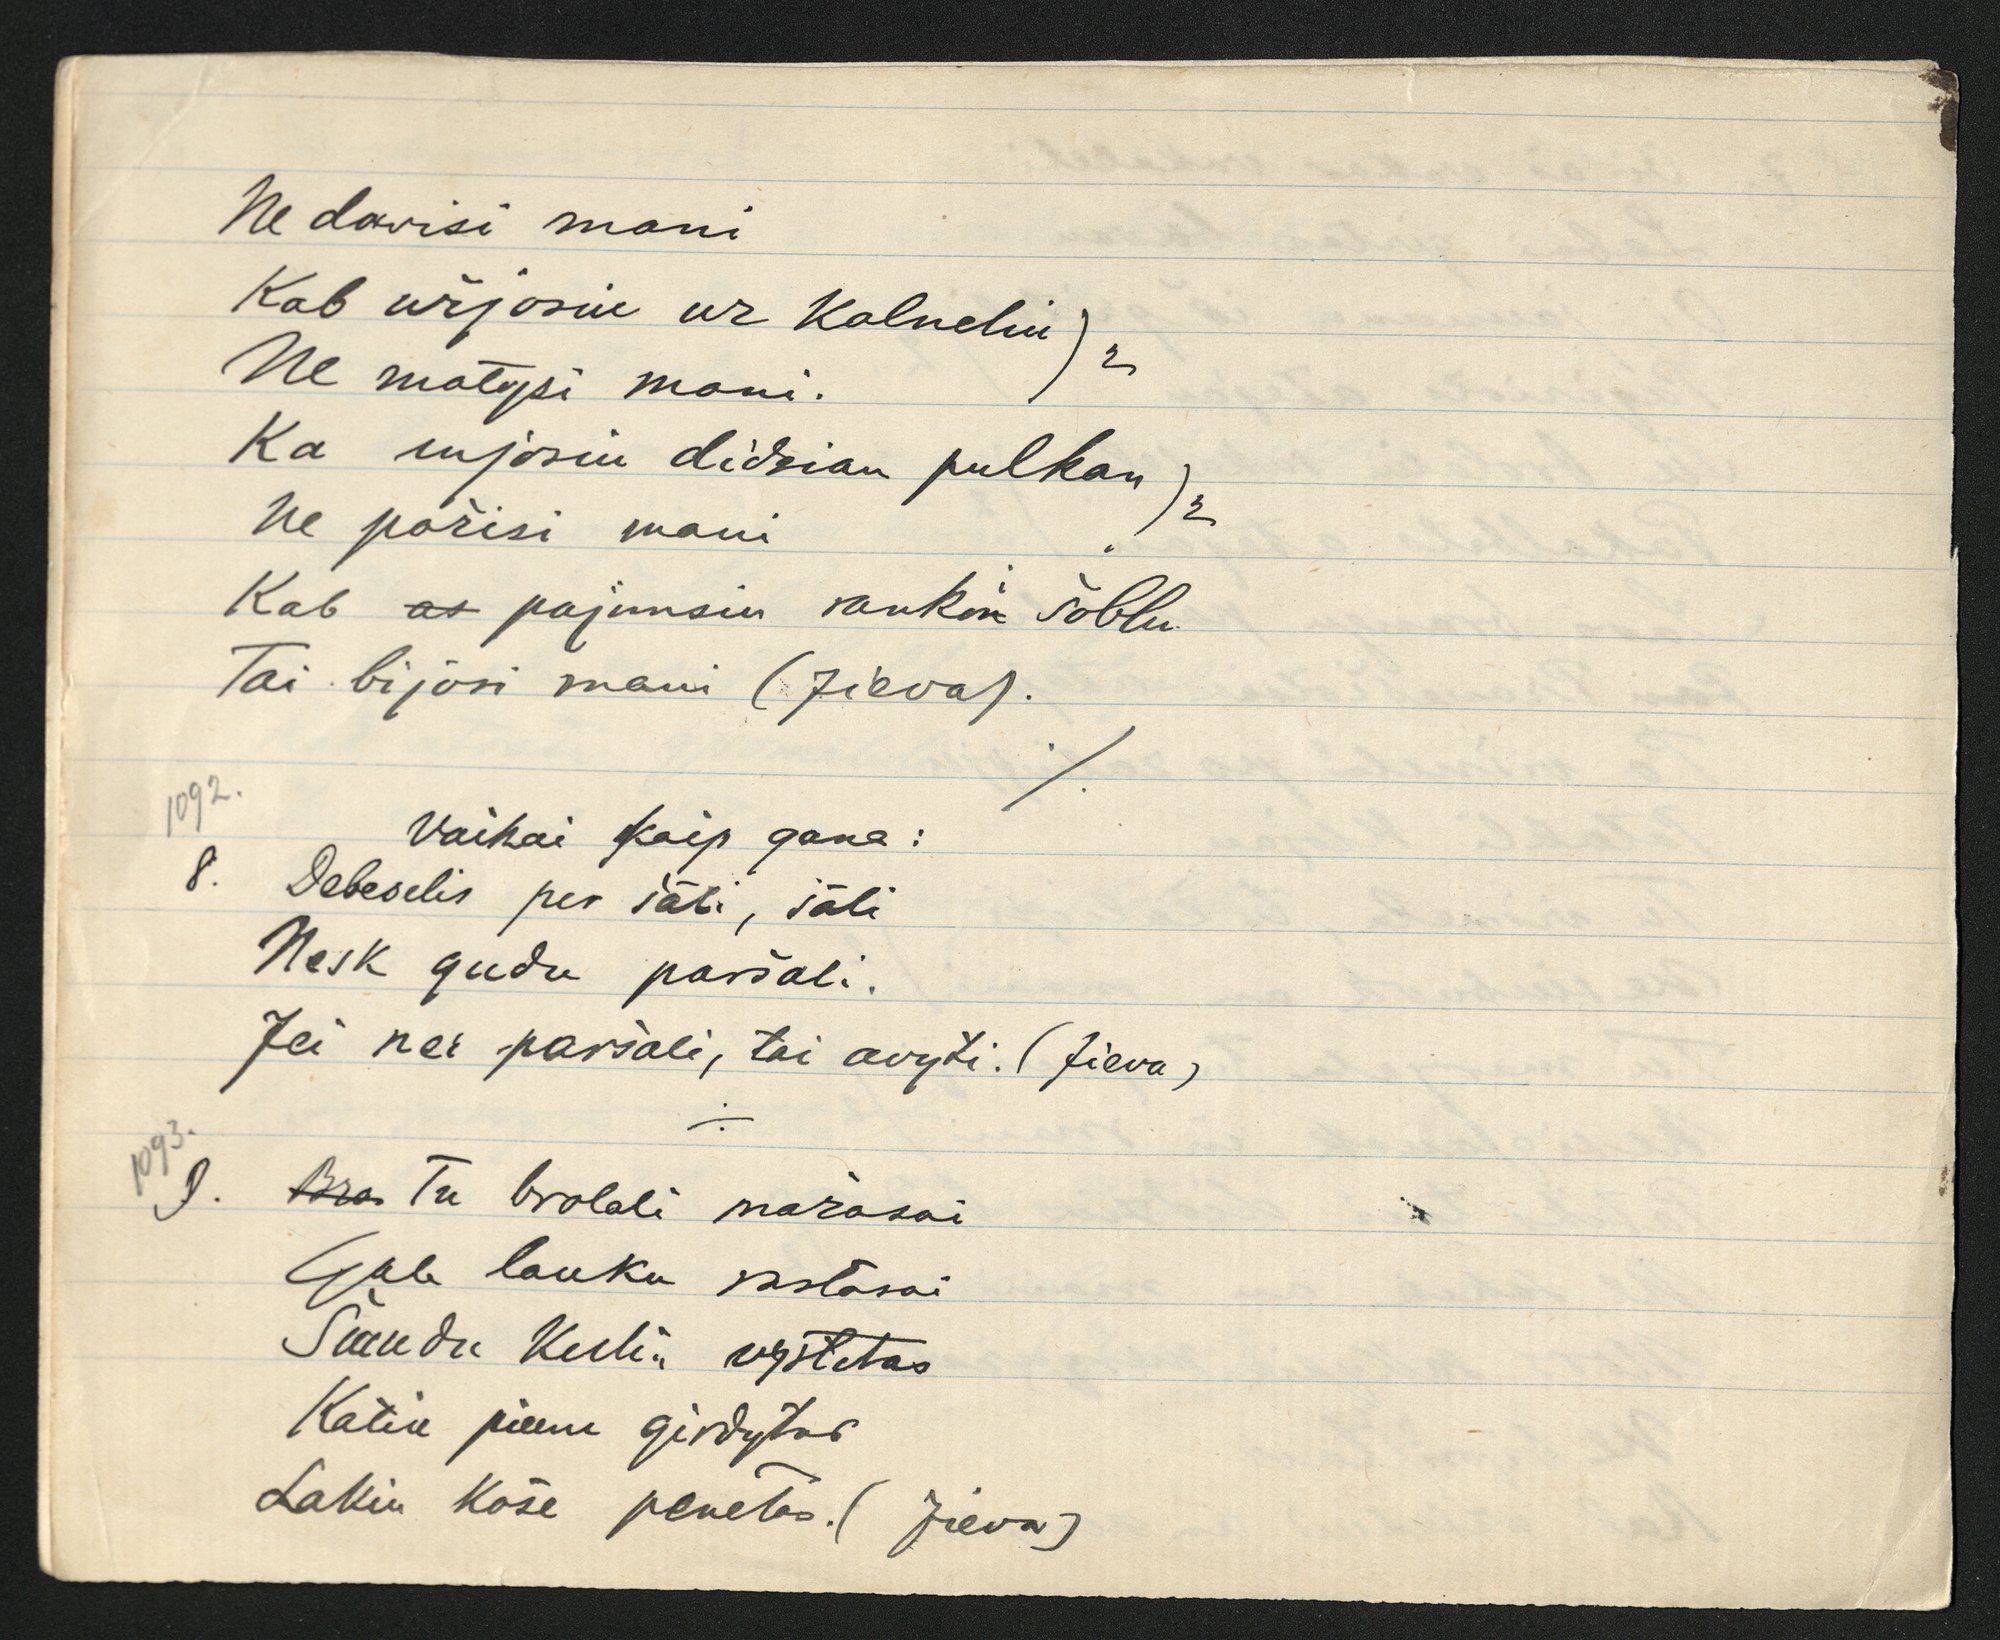 Ne davisi mani
Kab užjosiu uz Kalneliu ) 2
Ne matysi mani.
Ka injosiu didzian pulkan ) 2
Ne pažisi mani
Kab as pajimsiu rankon šoblu
Tai bijosi mani (Jieva).
1092.
Vaikai kaip gana:
8. Debeselis per šäli, šäli
Nesk gudu paršali.
Jei nei paršali, tai avyti. (Jieva)
1093.
9. Bra Tu brolali mažasai
Galu lauku rastasai
Šundu Kuliu vystitas
Katiu pienu girdytas
Lakiu Koše penetas. (Jieva)